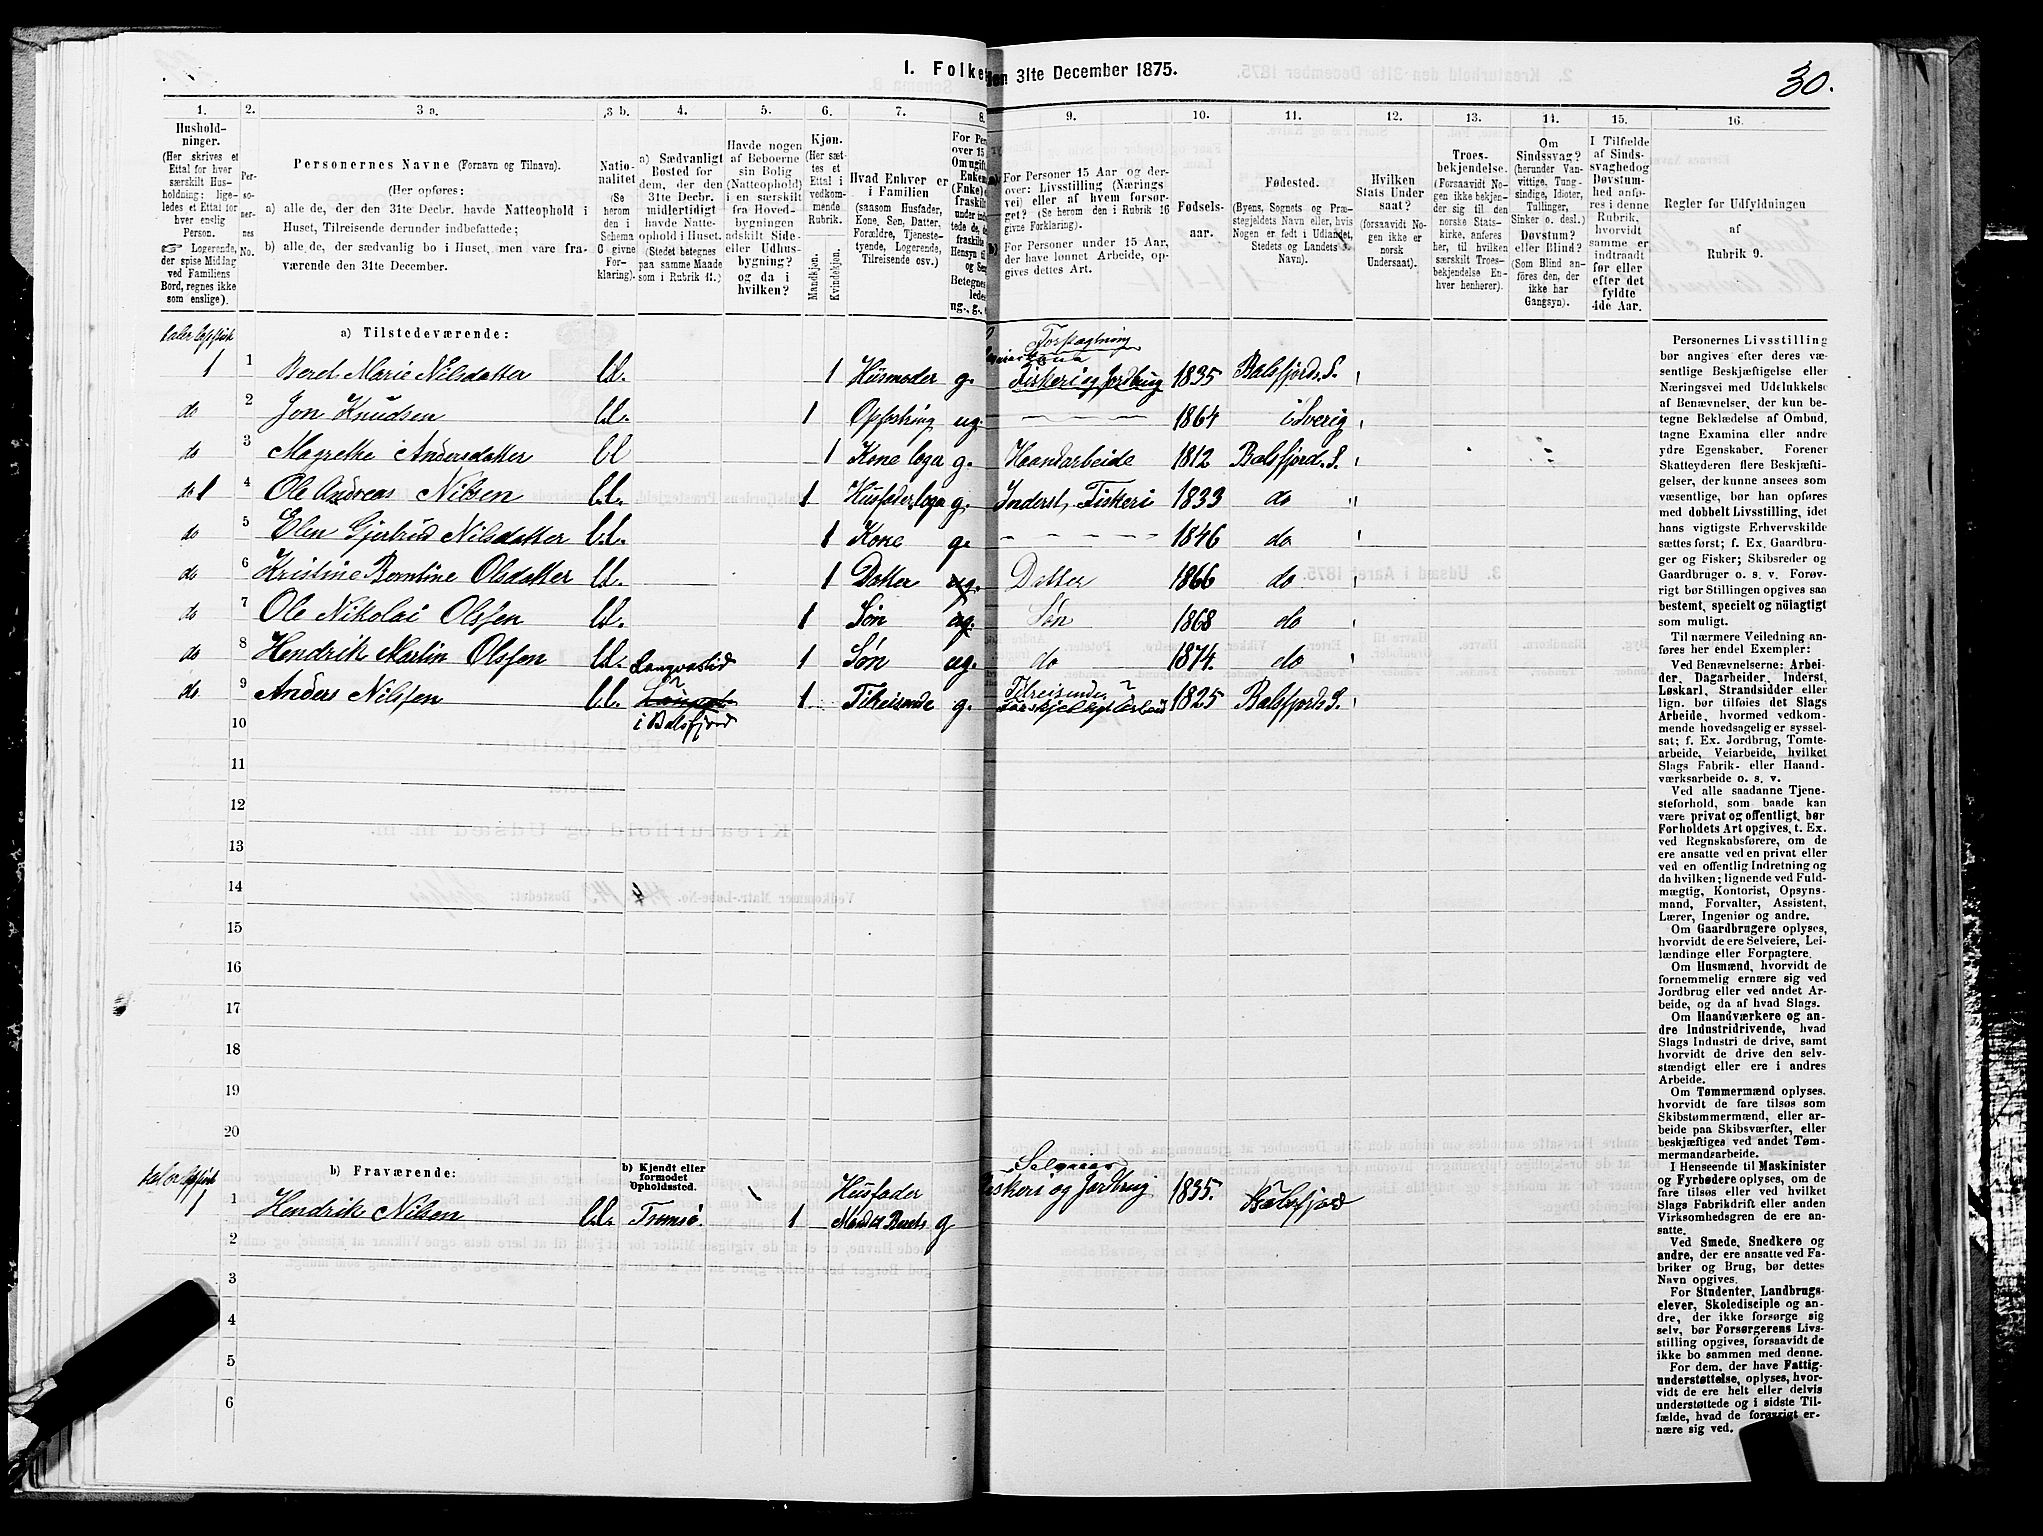 1. Folke
den 31te December 1875.
30.
1.
2.
3 a.
3 b.
4.
5.
6.
7.
8.
9.
10.
11.
12.
13.
14.
15.
16.
Hushold-
ninger.
(Her skrives et
Ettal for hver
særskilt Hus-
holdning; lige-
ledes et Ettal for
hver enslig
Person.
☞ Logerende,
der spise Middag
ved Familiens
Bord, regnes ikke
som enslige).
Per-
so-
ner-
nes
No.
Personernes Navne (Fornavn og Tilnavn).
(Her opføres:
a) alle de, der den 31te Decbr. havde Natteophold i
Huset, Tilreisende derunder indbefattede;
b) alle de, der sædvanlig bo i Huset, men vare fra-
værende den 31te December.
Natio-
nalitet
(Se
herom
den i
Schema
O givne
For-
klaring).
a) Sædvanligt
Bosted for
dem, der den
31te Decbr.
midlertidigt
havde Natte-
ophold i Huset.
(Stedet betegnes
paa samme Maade
som i Rubrik 11.)
Havde nogen
af Beboerne
sin Bolig
(Natteophold)
i en særskilt
fra Hoved-
bygningen
adskilt Side-
eller Udhus-
bygning?
og da i
hvilken?
Kjøn.
(Her sæt-
tes et
Ettal i
vedkom-
mende
Rubrik.
Mandkjøn.
Kvindekjøn.
Hvad Enhver er
i Familien
(saasom Husfader,
Kone, Søn, Datter,
Forældre, Tjeneste-
tyende, Logerende,
Tilreisende osv.)
For Per
over 15
Om ugift
Enkem
(Enke) e
fraskilt
under ind
tede de, d
fraskilte
Hensyn til
og Sen
Betegnes
ledes
ug., g.,
For Personer 15 Aar og der-
over: Livsstilling (Nærings
vei) eller af hvem forsør-
get? (Se herom den i Rubrik 16
givne Forklaring).
b)
For Personer under 15 Aar,
der have lønnet Arbeide, op-
gives dettes Art.
Fødsels-
aar.
Fødested.
(Byens, Sognets og Præ-
stegjeldets Navn eller, hvis
Nogen er født i Udlandet,
Stedets og Landets
Navn).
Hvilken
Stats Under
saat?
(forsaavidt No-
gen ikke er
norsk
Undersaat).
Troes-
bekjendelse.
(Forsaavidt No-
gen ikke bekjen-
der sig til den
norske Stats-
kirke, anføres
her, til hvilken
særskilt Troes-
bekjendelse En-
hver henhører).
Om
Sindssvag?
(herunder Van-
vittige, Tung-
sindige, Idioter,
Tullinger,
Sinker o. desl.)
Døvstum?
eller Blind?
(Som Blind an-
føres den, der
ikke har
Gangsyn).
I Tilfælde
af Sinds-
svaghedog
Døvstum-
hed anfø-
res i denne
Rubrik,
hvorvidt
samme er
indtraadt
før eller
efter det
fyldte
4de Aar.
Regler for Udfyldningen
af
Rubrik 9.
a) Tilstedeværende:
Forpagtning
1 1 Beret Marie Nilsdatter l.l. 1 Husmoder g. Fiskeri og Jordbrug 1835 Balsfjords S.
do 2 Jon Knudsen l.l. 1 Opfostring ug. 1864 i Sverig
do 3 Magrethe Andersdatter l.l 1 Kone loga g. Haandarbeide 1812 Balsfjord. S.
do 1 4 Ole Andreas Nilsen l.l. 1 Husfader loga g. Inderst, Fiskeri 1833 do
do 5 Elen Gjertrud Nilsdatter l.l. 1 Kone g. 1846 do
do 6 Kristine Berntine Olsdatter l.l. 1 Datter ug. Datter 1866 do
do 7 Ole Nikolai Olsen l.l. 1 Søn ug. Søn 1868 do
do 8 Hendrik Martin Olsen l.l. 1 Søn ug. do 1874. do
do 9 Anders Nilsen l.l. 1 Tilreisende g. Tilreisende 1825 Balsfjords S.
i Balsfjord
10
11
12
13
14
15
16
17
18
19
20
b) Fraværende:
b) Kjendt eller
formodet
Opholdssted.
Husfader
Selveier
1 1 Hendrik Nilsen l.l. Tromsø. 1 Mand til Berets g Fiskeri og Jordbrug 1835. Balsfjord
2
3
4
5
6
Personernes Livsstilling
bør angives efter deres væ-
sentlige Beskjæftigelse eller
Næringsvei med Udelukkelse
af Benævnelser, der kun be-
tegne Beklædelse af Ombud,
tagne Examina eller andre
ydre Egenskaber. Forener
Skatteyderen flere Beskjæfti-
gelser, der kunne ansees som
væsentlige, bør han opføres
med dobbelt Livsstilling, idet
hans vigtigste Erhvervskilde
sættes først; f. Ex. Gaardbru-
ger og Fisker; Skibsreder og
Gaardbruger o. s. v. Forøv-
rigt bør Stillingen opgives saa
bestemt, specielt og nöiagtigt
som muligt.
Til nærmere Veiledning an-
føres her endel Exempler:
Ved Benævnelserne: Arbei-
der, Dagarbeider, Inderst,
Løskarl, Strandsidder eller
lign. bør tilføies det Slags
Arbeide, hvormed vedkom-
mende hovedsagelig er syssel-
sat; f. Ex. Jordbrug, Tomte-
arbeide, Veiarbeide, hvilket
Slags Fabrik- eller Haand-
værksarbeide o. s. v.
Ved alle saadanne Tjene-
steforhold, som baade kan
være privat og offentligt, bør
Forholdets Art opgives, t. Ex.
ved Regnskabsførere, om de
ere ansatte ved en privat eller
ved en offentlig Indretning og
da hvilken; lignende ved Fuld-
mægtig, Kontorist, Opsyns-
mand, Forvalter, Assistent,
Lærer, Ingeniør og andre.
Om Gaardbrugere oplyses,
hvorvidt de ere Selveiere, Lei-
lændinge eller Forpagtere.
Om Husmænd, hvorvidt de
fornemmelig ernære sig ved
Jordbrug eller ved andet Ar-
beide, og da af hvad Slags.
Om Haandværkere og an-
dre Industridrivende, hvad
Slags Industri de drive, samt
hvorvidt de drive den selv-
stændigt eller ere i andres
Arbeide.
Om Tømmermænd oplyses,
hvorvidt de fare tilsøs som
Skibstømmermænd, eller ar-
beide paa Skibsværfter, eller
beskjæftiges ved andet Tøm-
mermandsarbeide.
I Henseende til Maskinister
og Fyrbødere oplyses, om de
fare tilsøs eller ved hvilket
Slags Fabrikdrift eller anden
Virksomhedsgren de ere an-
satte.
Ved Smede, Snedkere og
andre, der ere ansatte ved Fa-
briker og Brug, bør dettes
Navn opgives.
For Studenter, Landbrugs-
elever, Skoledisciple og an-
dre, der ikke forsørge sig
selv, bør Forsørgerens Livs-
stilling opgives, forsaavidt de
ikke bo sammen med denne.
For dem, der have Fattig-
understøttelse, oplyses, hvor-
vidt de ere helt eller delvis
understøttede og i sidste Til-
fælde, hvad de forøvrigt er-
nære sig ved.